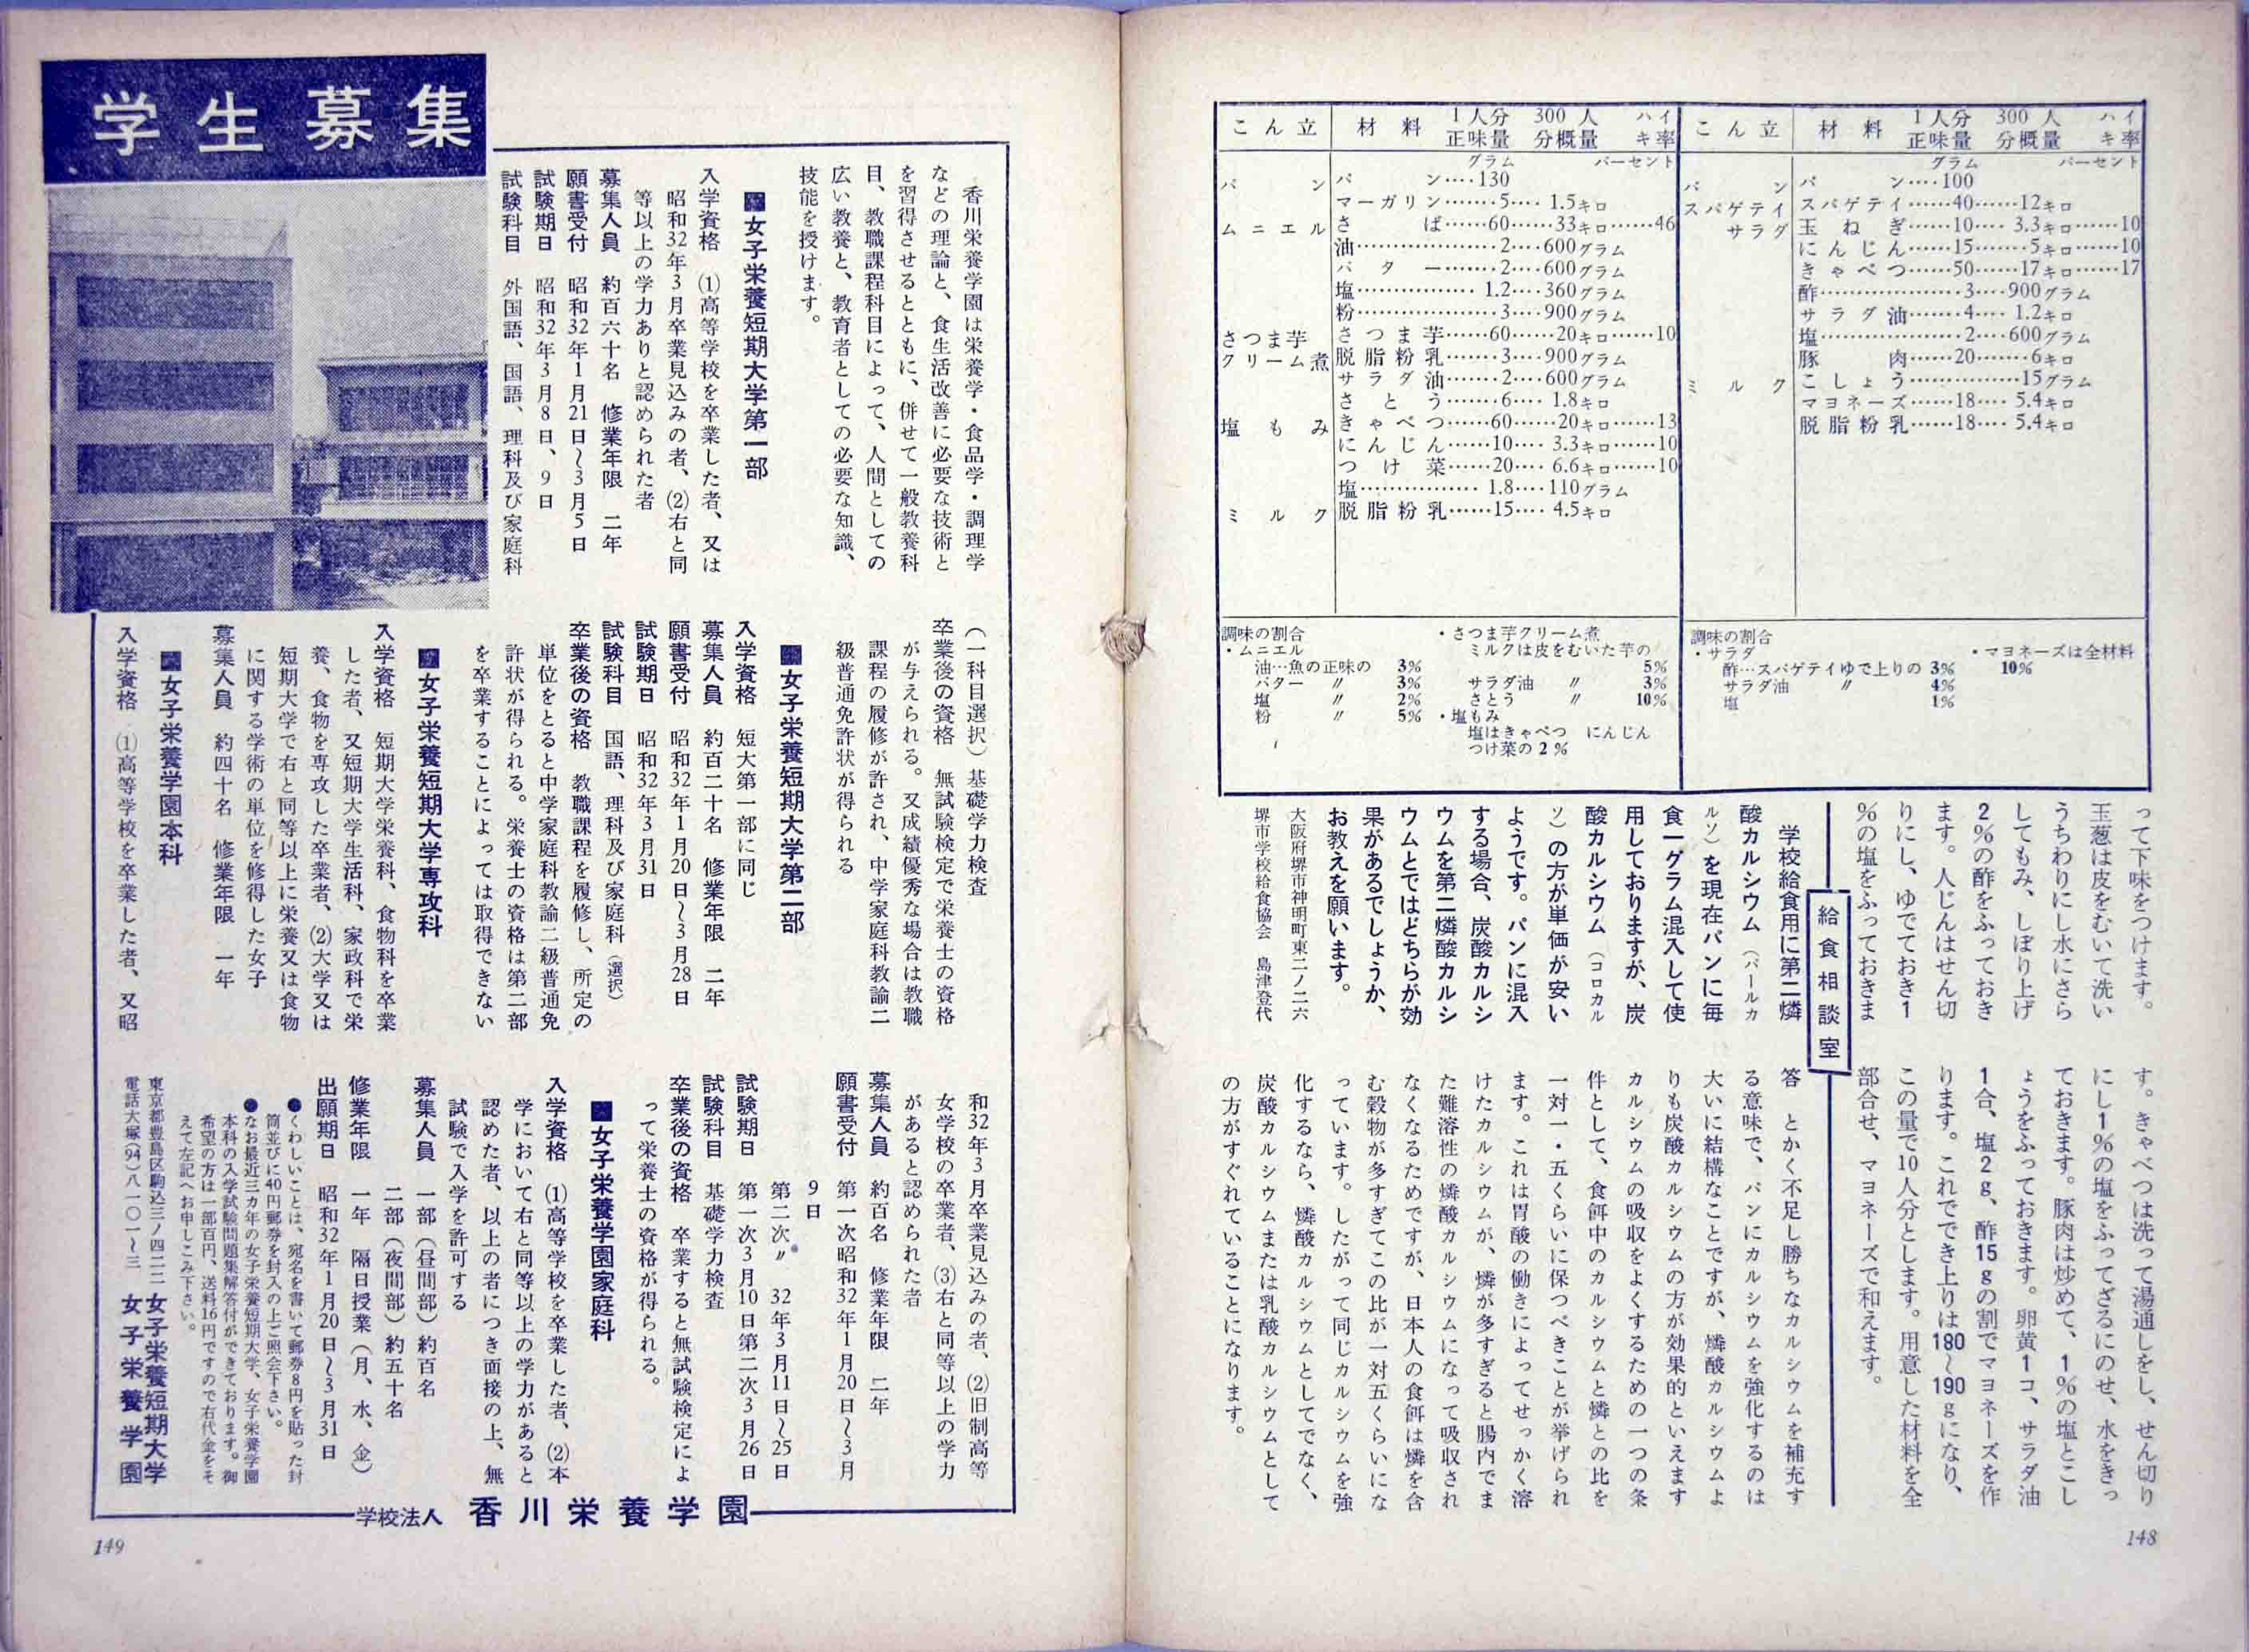 こん立 材料 1人分正味量 300人分概量 ハイキ率
グラム パーセント
パン パン‥‥100
スパゲテイサラダ スパゲテイ‥‥‥40‥‥‥12キロ
玉ねぎ‥‥‥10‥‥3.3キロ‥‥‥10
にんじん‥‥‥15‥‥‥5キロ‥‥‥10
きゃべつ‥‥‥50‥‥‥17キロ‥‥‥17
酢‥‥‥3‥‥900グラム
サラダ油‥‥‥4‥‥1.2キロ
塩‥‥‥2‥‥600グラム
豚肉‥‥‥20‥‥‥6キロ
こしょう‥‥‥15グラム
マヨネーズ‥‥‥18‥‥5.4キロ
ミルク 脱脂粉乳‥‥‥18‥‥5.4キロ
調味の割合
・サラダ
酢…スパゲテイゆで上りの 3%
サラダ油 〃 4%
塩 1%
・マヨネーズは全材料
10%
こん立 材料 1人分正味量 300人分概量 ハイキ率
グラム パーセント
パン パン‥‥130
マーガリン‥‥‥5‥‥1.5キロ
ムニエル さば‥‥‥60‥‥‥33キロ‥‥‥46
油‥‥‥2‥‥600グラム
バター‥‥‥2‥‥600グラム
塩‥‥‥1.2‥‥360グラム
粉‥‥‥3‥‥900グラム
さつま芋クリーム煮 さつま芋‥‥‥60‥‥‥20キロ‥‥‥10
脱脂粉乳‥‥‥3‥‥900グラム
サラダ油‥‥‥2‥‥600グラム
さとう‥‥‥6‥‥1.8キロ
塩もみ きゃべつ‥‥‥60‥‥‥20キロ‥‥‥13
にんじん‥‥‥10‥‥3.3キロ‥‥‥10
つけ菜‥‥‥20‥‥6.6キロ‥‥‥10
塩‥‥‥1.8‥‥110グラム
ミルク 脱脂粉乳‥‥‥15‥‥4.5キロ
調味の割合
・ムニエル
油…魚の正味の 3%
バター 〃 3%
塩 〃 2%
粉 〃 5%
・さつま芋クリーム煮
ミルクは皮をむいた芋の
5%
サラダ油 〃 3%
さとう 〃 10%
・塩もみ
塩はきゃべつ にんじん
つけ菜の2%
って下味をつけます。
玉葱は皮をむいて洗い
うちわりにし水にさら
してもみ、しぼり上げ
2%の酢をふっておき
ます。人じんはせん切
りにし、ゆでておき1
%の塩をふっておきま
す。きゃべつは洗って湯通しをし、せん切り
にし1%の塩をふってざるにのせ、水をきっ
ておきます。豚肉は炒めて、1%の塩とこし
ょうをふっておきます。卵黄1コ、サラダ油
1合、塩2g、酢15gの割でマヨネーズを作
ります。これででき上りは180〜190gになり、
この量で10人分とします。用意した材料を全
部合せ、マヨネーズで和えます。
給食相談室
学校給食用に第二燐
酸カルシウム（パールカ
ルソ）を現在パンに毎
食一グラム混入して使
用しておりますが、炭
酸カルシウム（コロカル
ソ）の方が単価が安い
ようです。パンに混入
する場合、炭酸カルシ
ウムを第二燐酸カルシ
ウムとではどちらが効
果があるでしょうか、
お教えを願います。
大阪府堺市神明町東二ノ二六
堺市学校給食協会 島津登代
答 とかく不足し勝ちなカルシウムを補充す
る意味で、パンにカルシウムを強化するのは
大いに結構なことですが、燐酸カルシウムよ
りも炭酸カルシウムの方が効果的といえます
カルシウムの吸収をよくするための一つの条
件として、食餌中のカルシウムと燐との比を
一対一・五くらいに保つべきことが挙げられ
ます。これは胃酸の働きによってせっかく溶
けたカルシウムが、燐が多すぎると腸内でま
た難溶性の燐酸カルシウムになって吸収され
なくなるためですが、日本人の食餌は燐を含
む穀物が多すぎてこの比が一対五くらいにな
っています。したがって同じカルシウムを強
化するなら、燐酸カルシウムとしてでなく、
炭酸カルシウムまたは乳酸カルシウムとして
の方がすぐれていることになります。
148
学生募集
香川栄養学園は栄養学・食品学・調理学
などの理論と、食生活改善に必要な技術と
を習得させるとともに、併せて一般教養科
目、教職課程科目によって、人間としての
広い教養と、教育者としての必要な知識、
技能を授けます。
■女子栄養短期大学第一部
入学資格 (1)高等学校を卒業した者、又は
昭和32年3月卒業見込みの者、(2)右と同
等以上の学力ありと認められた者
募集人員 約百六十名 修業年限 二年
願書受付 昭和32年1月21日〜3月5日
試験期日 昭和32年3月8日、9日
試験科目 外国語、国語、理科及び家庭科
（一科目選択）基礎学力検査
卒業後の資格 無試験検定で栄養士の資格
が与えられる。又成績優秀な場合は教職
課程の履修が許され、中学家庭科教諭二
級普通免許状が得られる
■女子栄養短期大学第二部
入学資格 短大第一部に同じ
募集人員 約百二十名 修業年限 二年
願書受付 昭和32年1月20日〜3月28日
試験期日 昭和32年3月31日
試験科目 国語、理科及び家庭科（選択）
卒業後の資格 教職課程を履修し、所定の
単位をとると中学家庭科教諭二級普通免
許状が得られる。栄養士の資格は第二部
を卒業することによっては取得できない
■女子栄養短期大学専攻科
入学資格 短期大学栄養科、食物科を卒業
した者、又短期大学生活科、家政科で栄
養、食物を専攻した卒業者、(2)大学又は
短期大学で右と同等以上に栄養又は食物
に関する学術の単位を修得した女子
募集人員 約四十名 修業年限 一年
■女子栄養学園本科
入学資格 (1)高等学校を卒業した者、又昭
和32年3月卒業見込みの者、(2)旧制高等
女学校の卒業者、(3)右と同等以上の学力
があると認められた者
募集人員 約百名 修業年限 二年
願書受付 第一次昭和32年1月20日〜3月
9日
第二次〃 32年3月11日〜25日
試験期日 第一次3月10日第二次3月26日
試験科目 基礎学力検査
卒業後の資格 卒業すると無試験検定によ
って栄養士の資格が得られる。
■女子栄養学園家庭科
入学資格 (1)高等学校を卒業した者、(2)本
学において右と同等以上の学力があると
認めた者、以上の者につき面接の上、無
試験で入学を許可する
募集人員 一部（昼間部）約百名
二部（夜間部）約五十名
修業年限 一年 隔日授業（月、水、金）
出願期日 昭和32年1月20日〜3月31日
●くわしいことは、宛名を書いて郵券8円を貼った封
筒並びに40円郵券を封入の上ご照会下さい。
●なお最近三カ年の女子栄養短期大学、女子栄養学園
本科の入学試験問題集解答付ができております。御
希望の方は一部百円、送料16円ですので右代金をそ
えて左記へお申しこみ下さい。
東京都豊島区駒込三ノ四二二 女子栄養短期大学
電話大塚(94)八一〇一〜三 女子栄養学園
学校法人 香川栄養学園
149